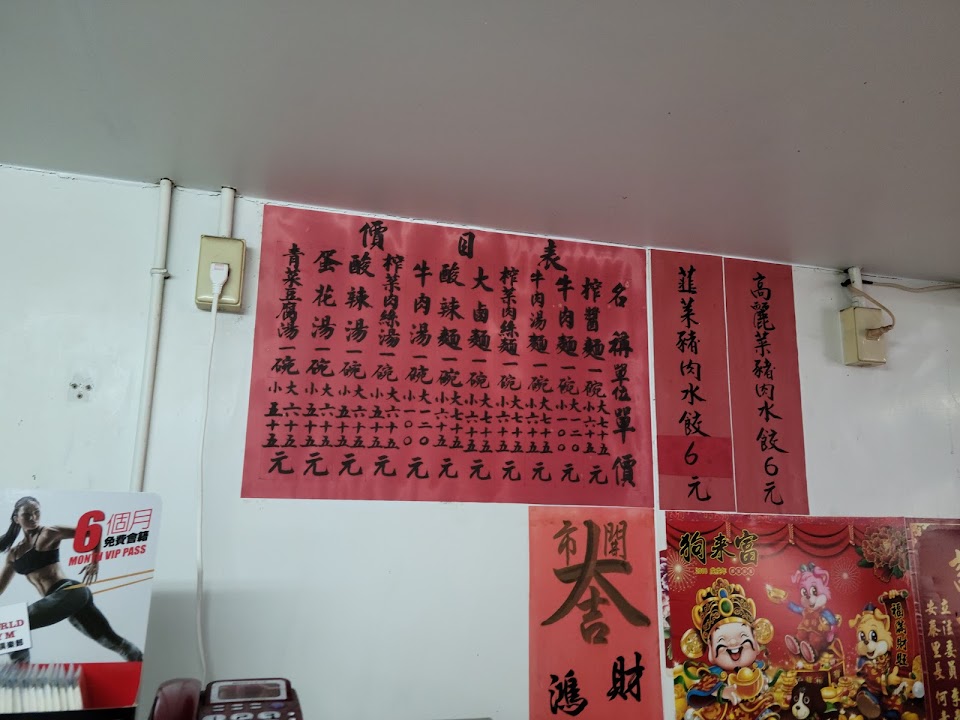 價目表
名稱 單位 單價
榨醬麵 一碗 大七十五 小六十五 元
牛肉麵 一碗 大一二〇 小一〇〇 元
牛肉湯麵 一碗 大七十五 小六十五 元
榨菜肉絲麵 一碗 大七十五 小六十五 元
大鹵麵 一碗 大七十五 小六十五 元
酸辣麵 一碗 大七十五 小六十五 元
牛肉湯 一碗 大一二〇 小一〇〇 元
榨菜肉絲湯 一碗 大六十五 小五十五 元
酸辣湯 一碗 大六十五 小五十五 元
蛋花湯 一碗 大六十五 小五十五 元
青菜豆腐湯 一碗 大六十五 小五十五 元
高麗菜豬肉水餃6元
韮菜豬肉水餃6元
6個月
免費會籍
MONTH VIP PASS
開市
大吉
財
鴻
狗来富
立法委員
安泰里長 何